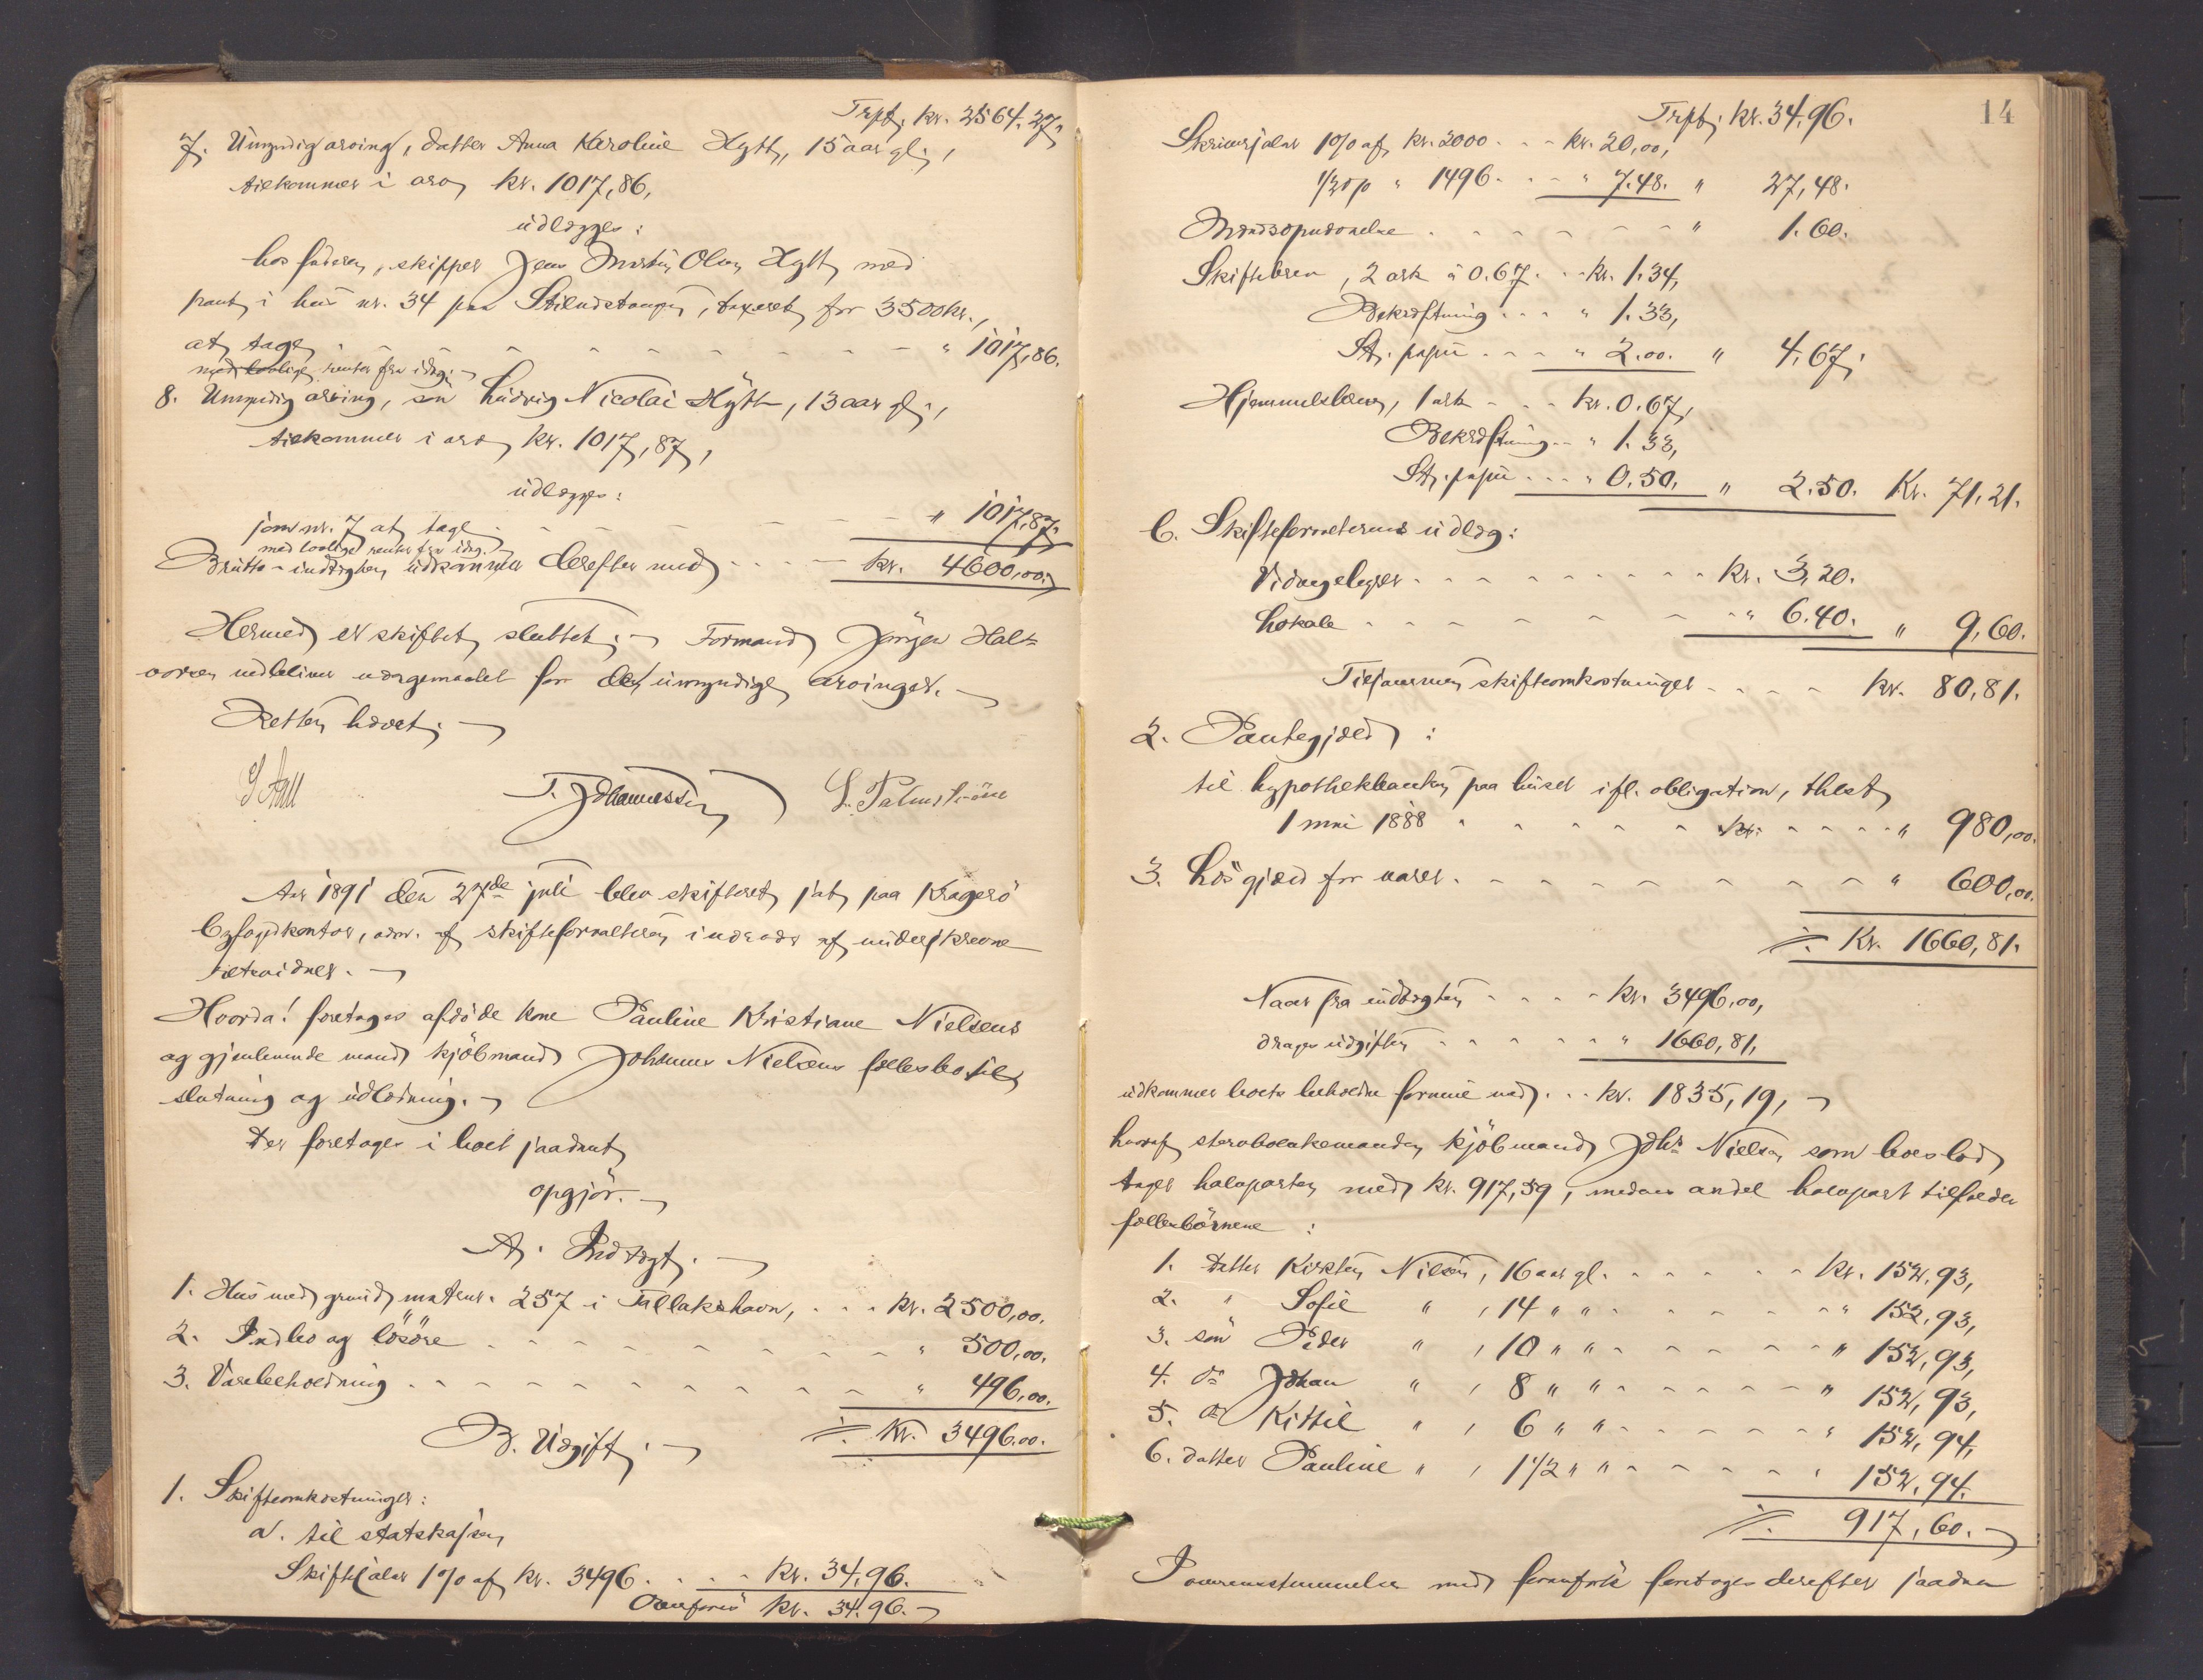 Trpt. kr. 2564.27.
7. Umyndig arving, datter Anna Karoline Hytt, 15 aar gl.,
tilkommer i arv kr. 1017,86,
udlægges:
hos faderen, skipper Jens Martin Olsen Hytt med
pant i hus nr. 34 paa Stilnestangen, taxeret for 3500 kr.,
at tage - - - - " 1017,86.
med lovlige renter fra idag.
8. Umyndig arving, søn Ludvig Nicolai Hytt, 13 aar gl.,
tilkommer i arv kr. 1017,87,
udlægges:
som nr. 7 at tage - - - - " 1017,87.
med lovlige renter fra idag.
Brutto-indtægten udkommer derefter med - - - kr. 4600,00.
Hermed er skiftet sluttet. Formand Jørgen Hal-
vorsen vedbliver værgemaalet for de umyndige arvinger.
Retten hævet.
T. Johannessen S. Palmstrøm
Aar 1891 den 27de juli blev skifteret sat paa Kragerø
byfogdkontor, adm. af skifteforvalteren i nærvær af underskrevne
retsvidner.
Hvorda! foretoges afdøde kone Pauline Kristiane Nielsens
og gjenlevende mand kjøbmand Johannes Nielsens fællesbo til
slutning og udlodning.
Der foretoges i boet saadant
opgjør.
A. Indtægt.
1. Hus med grund, matrnr. 257 i Tallakshavn, . . . kr. 2500,00.
2. Indbo og løsøre - - - - " 500,00.
3. Varebeholdning - - - - " 496,00.
÷ kr. 3496.00.
B. Udgift.
1. Skifteomkostninger:
a. til statskassen
Skiftesalær 1% af kr. 3496 . . . kr. 34,96.
Overføres kr. 34.96.
14
Trpt. kr. 34.96.
Skriversalær 1% af kr. 2000 . . . kr. 20,00,
1/2% " 1496 . . . " 7.48. " 27,48.
- - - - " 1.60.
Skiftebrev, 2 ark à 0.67 . . kr. 1.34,
Bekræftning . . . " 1.33,
St. papir . . . " 2.00. " 4.67.
Hjemmelsbrev, 1 ark - - - kr. 0.67,
Bekræftning . . " 1.33,
St. papir . . . " 0.50. " 2.50. Kr. 71.21.
b. Skifteforvalterens udlæg:
Vidnegebyrer - - - - kr. 3,20.
Lokale - - - - " 6.40. " 9,60.
Tilsammen skifteomkostninger - - - - kr. 80,81.
2. Pantegjæld:
til hypothekbanken paa huset ifl. obligation, thlæst
1 mai 1888 - - - - " 980,00.
3. Løs gjæld for varer - - - - " 600,00.
÷ Kr. 1660,81.
Naar fra indtægten - - - - kr. 3496,00,
drages udgiften - - - - " 1660,81,
udkommer boets beholdne formue med . . . kr. 1835,19,
hvoraf sterboenkemanden kjøbmand Johs Nielsen som boeslod
tager halvparten med kr. 917,59, medens anden halvpart tilfalder
fællesbørnene:
1. datter Kirsten Nielsen, 16 aar gl. - - - - kr. 152,93,
2. " Sofie " , 14 " " - - - - " 152,93,
3. søn Peder " , 10 " " - - - - " 152,93,
4. do Johan " , 8 " " - - - - " 152,93,
5. do Kittil " , 6 " " - - - - " 152,94,
6. datter Pauline " , 1 1/2 " " - - - - " 152,94.
÷ 917,60.
I overensstemmelse med foranført foretoges derefter saadan